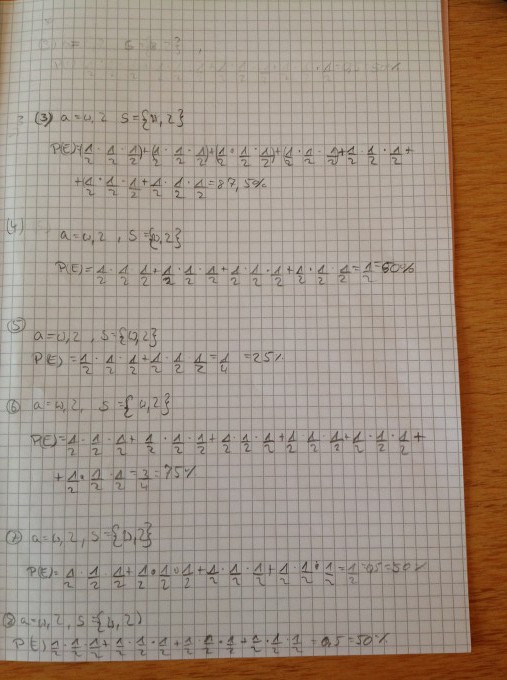 (3) a = w, z S = {w, z}
P(E) = (1/2 · 1/2 · 1/2) + (1/2 · 1/2 · 1/2) + (1/2 · 1/2 · 1/2) + (1/2 · 1/2 · 1/2) + 1/2 · 1/2 · 1/2 +
+ 1/2 · 1/2 · 1/2 + 1/2 · 1/2 · 1/2 = 87,5%
(4)
a = w, z , S = {w, z}
P(E) = 1/2 · 1/2 · 1/2 + 1/2 · 1/2 · 1/2 + 1/2 · 1/2 · 1/2 + 1/2 · 1/2 · 1/2 = 1/2 = 50%
(5)
a = w, z , S = {w, z}
P(E) = 1/2 · 1/2 · 1/2 + 1/2 · 1/2 1/2 = 1/4 = 25%
(6) a = w, z, S = {w, z}
P(E) = 1/2 · 1/2 · 1/2 + 1/2 · 1/2 · 1/2 + 1/2 · 1/2 · 1/2 + 1/2 · 1/2 · 1/2 + 1/2 · 1/2 · 1/2 +
+ 1/2 · 1/2 · 1/2 = 3/4 = 75%
(7) a = w, z , S = {w, z}
P(E) = 1/2 · 1/2 · 1/2 + 1/2 · 1/2 · 1/2 + 1/2 · 1/2 · 1/2 + 1/2 · 1/2 · 1/2 = 1/2 = 0,5 = 50%
(8) a = w, z , S = {w, z)
P(E) 1/2 · 1/2 · 1/2 + 1/2 · 1/2 · 1/2 + 1/2 · 1/2 · 1/2 + 1/2 · 1/2 · 1/2 = 0,5 = 50%